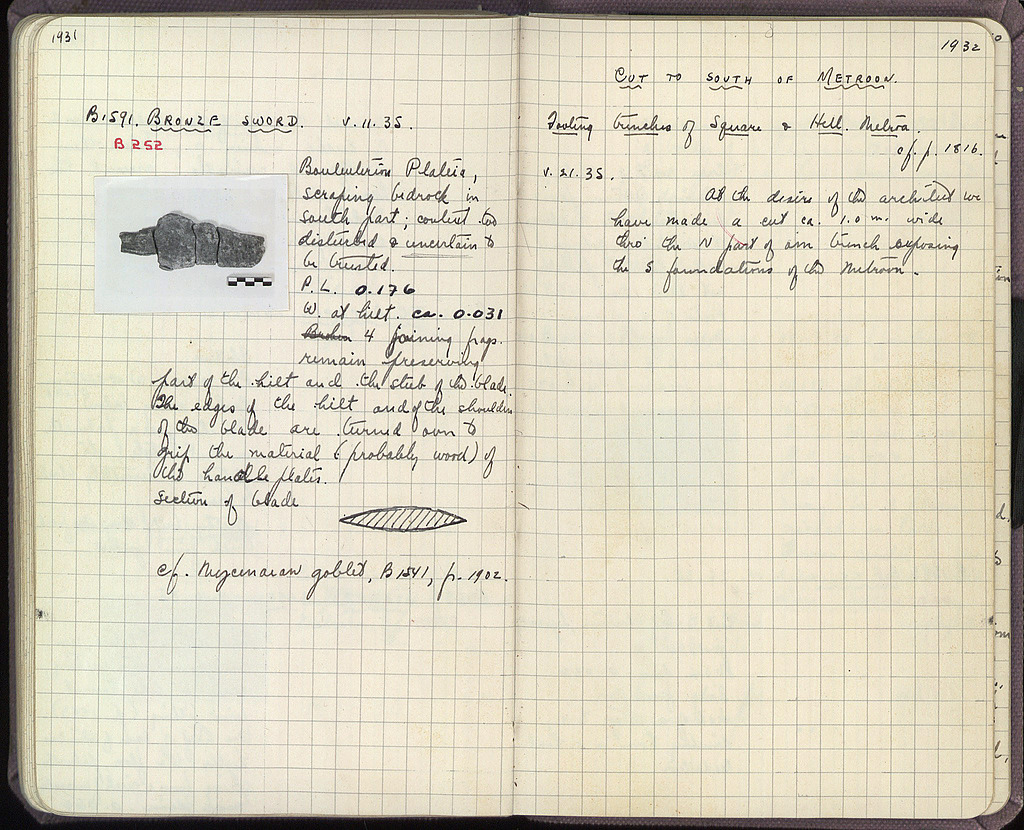 1931
B1591. BRONZE SWORD. V.11.35.
B 252
Bouleuterion Plateia,
scraping bedrock in
south part; context too
disturbed & uncertain to
be trusted.
P.L. 0.176
W. at hilt. ca. 0.031
Broken 4 joining frags.
remain preserving
part of the hilt and the stub of the blade.
The edges of the hilt and of the shoulders
of the blade are turned over to
grip the material (probably wood) of
the handle plates.
Section of blade
cf. Mycenaean goblet, B1541, p. 1902.
1932
CUT TO SOUTH OF METROON.
Footing trenches of Square & Hell. Metroa.
cf. p. 1816.
V.21.35.
At the desire of the architect we
have made a cut ca. 1.0 m. wide
thro' the N part of our trench exposing
the S foundations of the Metroon.